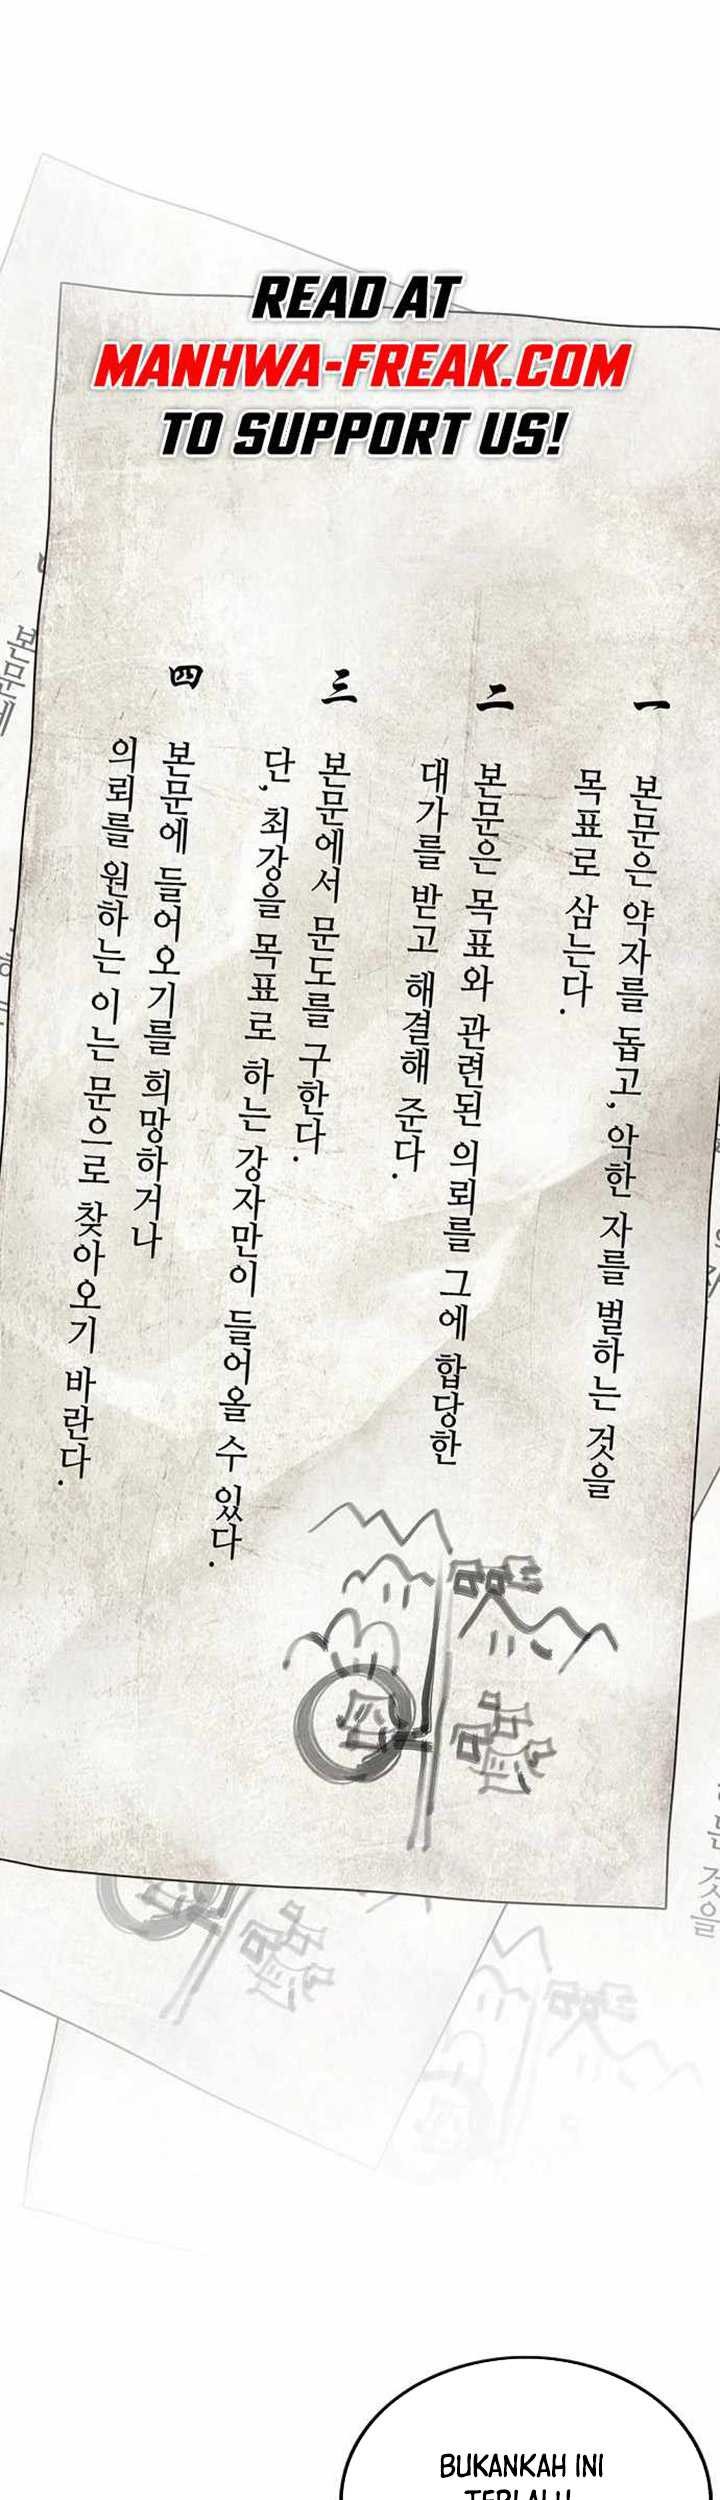 READ AT
MANHWA-FREAK.COM
TO SUPPORT US!
一
본문은 약자를 돕고, 악한 자를 벌하는 것을
목표로 삼는다.
二
본문은 목표와 관련된 의뢰를 그에 합당한
대가를 받고 해결해 준다.
三
본문에서 문도를 구한다.
단, 최강을 목표로 하는 강자만이 들어올 수 있다.
四
본문에 들어오기를 희망하거나
의뢰를 원하는 이는 문으로 찾아오기 바란다.
본문에
것을
BUKANKAH INI
TERLALU